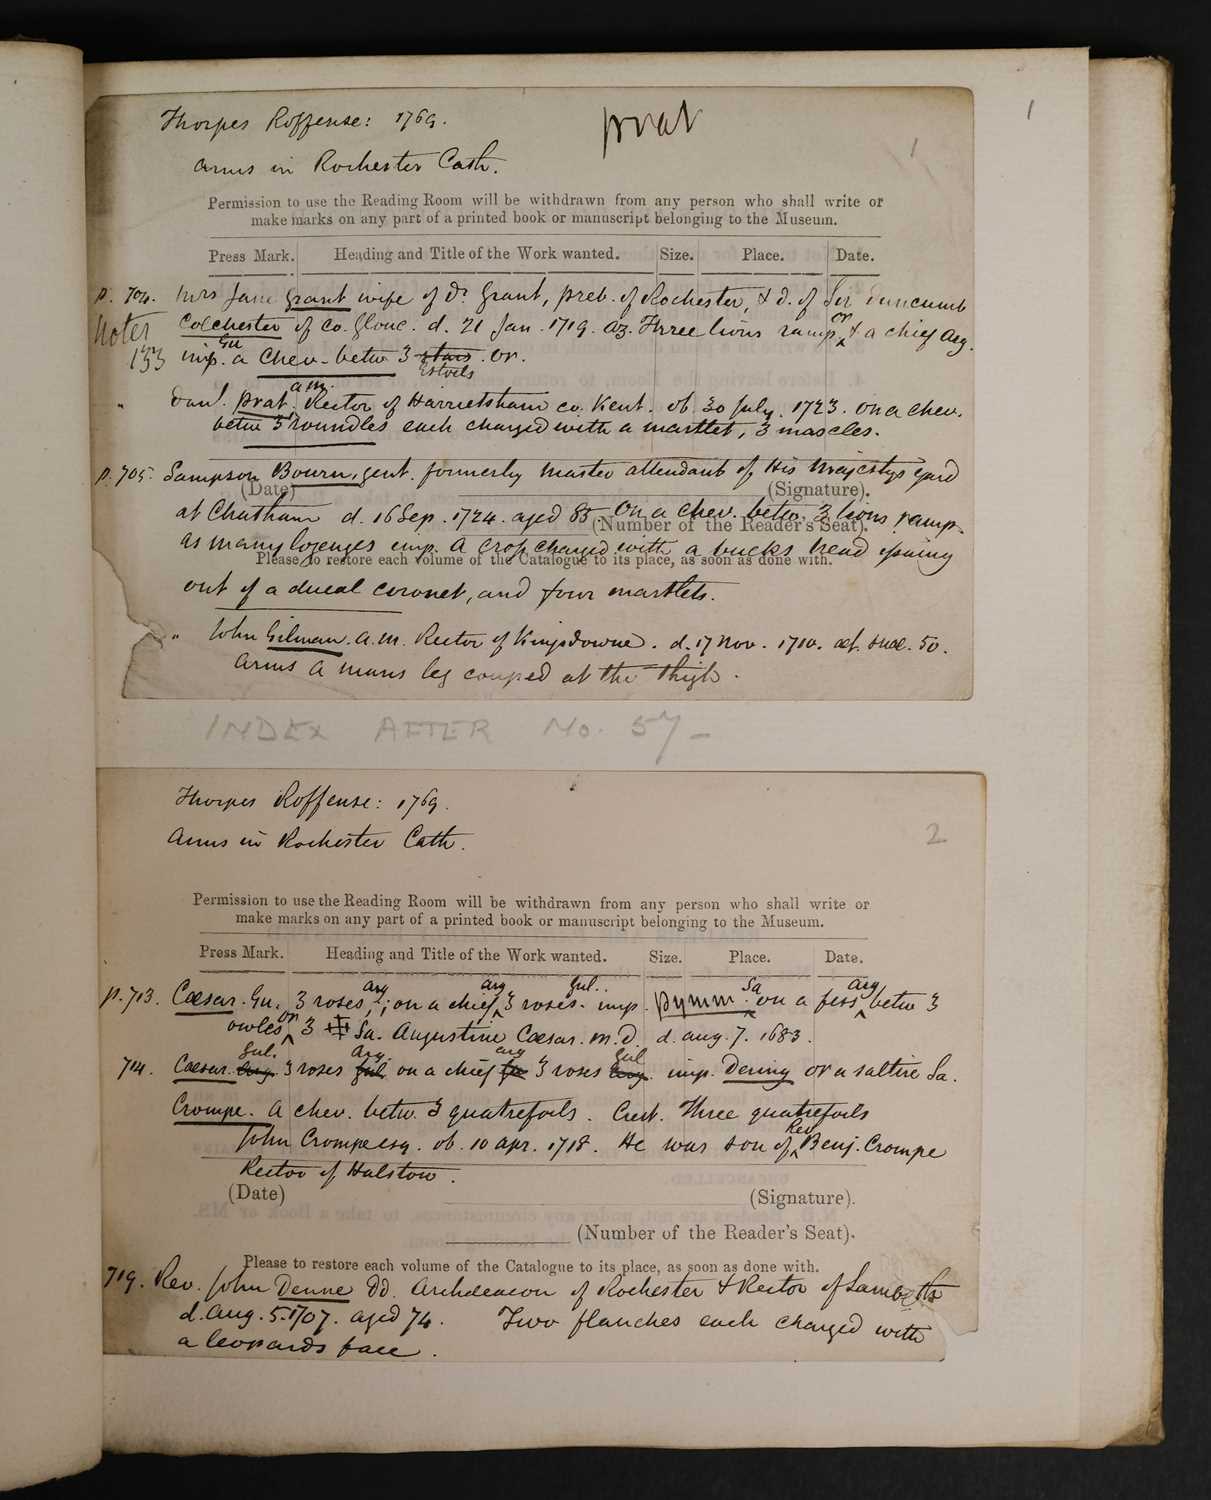 1
Thorpes Roffense: 1769.
prat
1
Arms in Rochester Cath.
Permission to use the Reading Room will be withdrawn from any person who shall write or
make marks on any part of a printed book or manuscript belonging to the Museum.
Press Mark. Heading and Title of the Work wanted. Size. Place. Date.
p. 704. Mrs Jane Grant wife of Dr Grant, preb. of Rochester, & d. of Sir Duncumb
Notes Colchester of Co. Glouc. d. 21 Jan. 1719. Az. Three lions ramp. or & a chief Arg.
153 imp. Gu a Chev. betw 3 stars Estoils or.
" Danl. prat. A.M. Rector of Harrietsham co. Kent. ob 30 July. 1723. on a chev.
betw 3 roundles each charged with a martlet, 3 mascles.
p. 705. Sampson Bourn, gent. formerly Master attendant of His Majestys yard
(Date) (Signature).
at Chatham d. 16 Sep. 1724. aged 85. On a Chev. betw. 3 lions ramp.
(Number of the Reader's Seat).
as many lozenges imp. A cross charged with a bucks head issuing
Please to restore each volume of the Catalogue to its place, as soon as done with.
out of a ducal coronet, and four martlets.
" John Gilman. A.M. Rector of Kingsdowne. d. 17 Nov. 1710. æt. suæ. 50.
Arms A mans leg couped at the thigh.
INDEX AFTER No. 57-
Thorpes Roffense: 1769.
2
Arms in Rochester Cath.
Permission to use the Reading Room will be withdrawn from any person who shall write or
make marks on any part of a printed book or manuscript belonging to the Museum.
Press Mark. Heading and Title of the Work wanted. Size. Place. Date.
p. 713. Cæsar. Gu. 3 roses Arg; on a chief Arg 3 roses Gul. imp. pymm. Sa on a fess Arg betw 3
owles or 3 ☩ Sa. Augustine Cæsar. M.D. d. Aug. 7. 1683.
714. Cæsar. Gul. Arg. 3 roses Arg. Gul. on a chief Arg Gu 3 roses Gul Arg. imp. Dering or a saltire Sa.
Crompe. A chev. betw. 3 quatrefoils. Crest. Three quatrefoils
John Crompe esq. ob. 10 Apr. 1718. He was son of Rev Benj. Crompe
Rector of Halstow.
(Date) (Signature).
(Number of the Reader's Seat).
Please to restore each volume of the Catalogue to its place, as soon as done with.
719. Rev. John Denne DD. Archdeacon of Rochester & Rector of Lambeth
d. Aug. 5. 1707. aged 74. Two flanches each charged with
a leopards face.